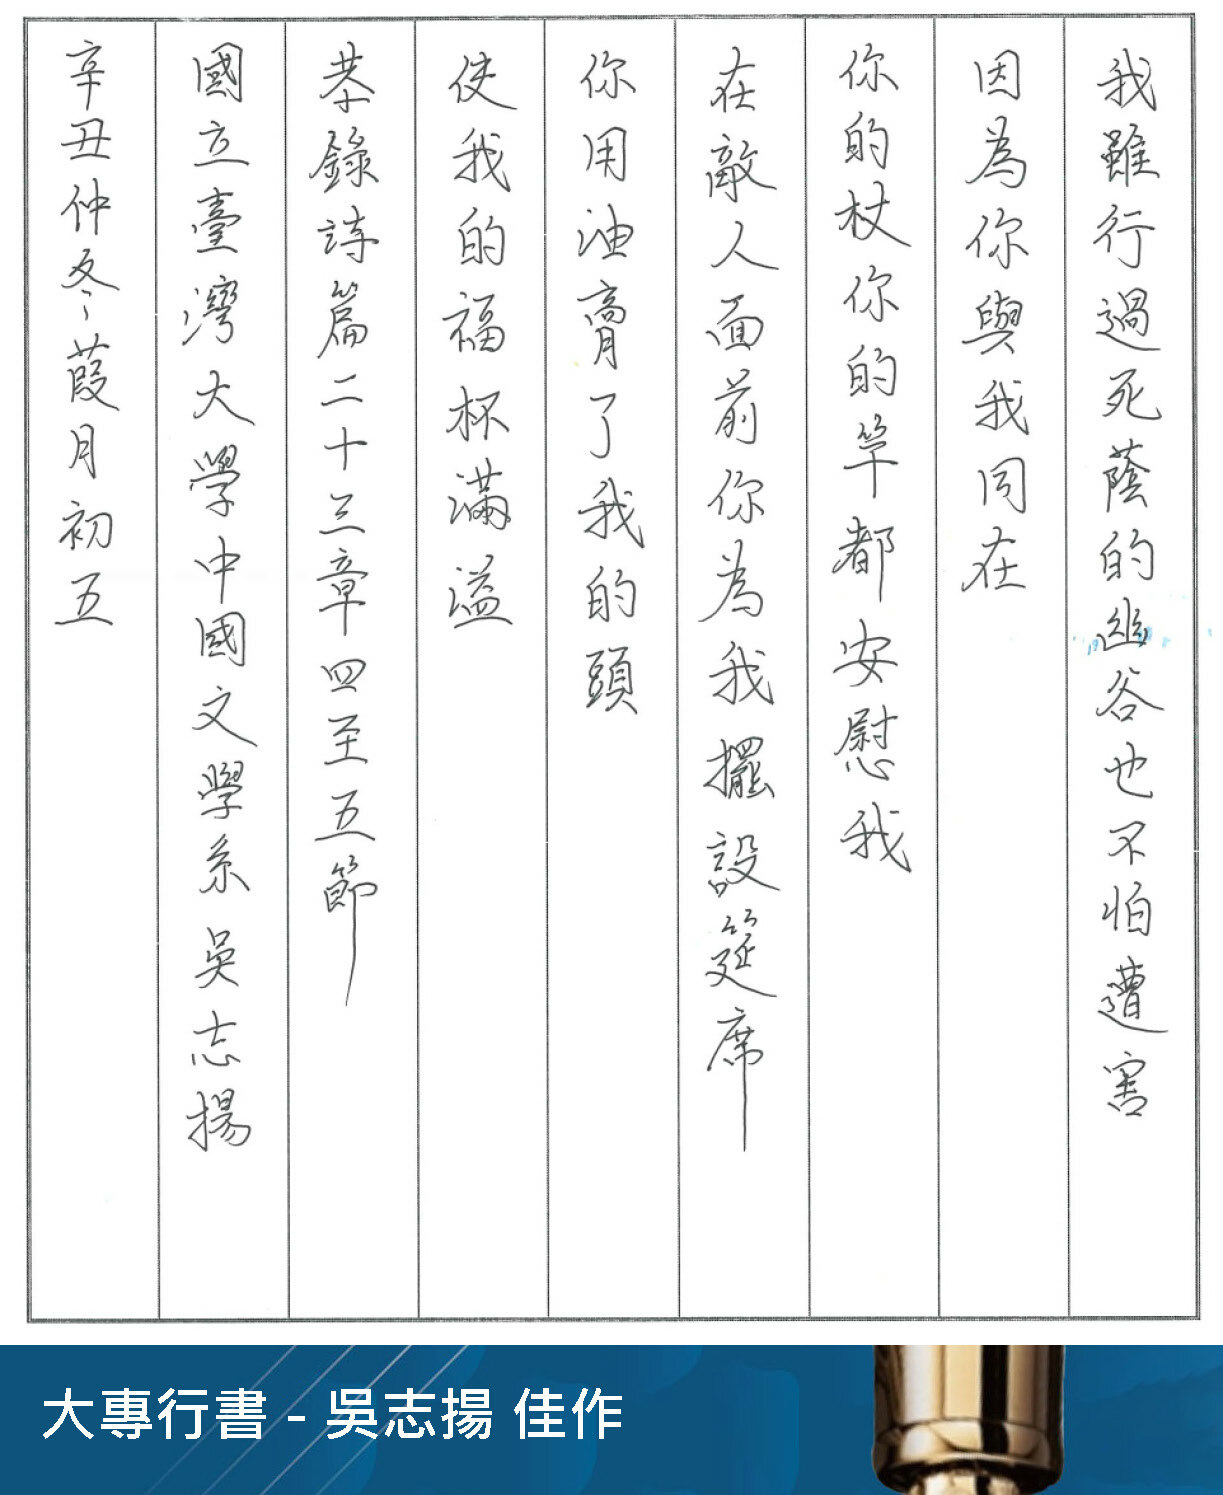 我雖行過死蔭的幽谷也不怕遭害
因為你與我同在
你的杖你的竿都安慰我
在敵人面前你為我擺設筵席
你用油膏了我的頭
使我的福杯滿溢
恭錄詩篇二十三章四至五節
國立臺灣大學中國文學系吳志揚
辛丑仲冬葭月初五
大專行書 - 吳志揚 佳作